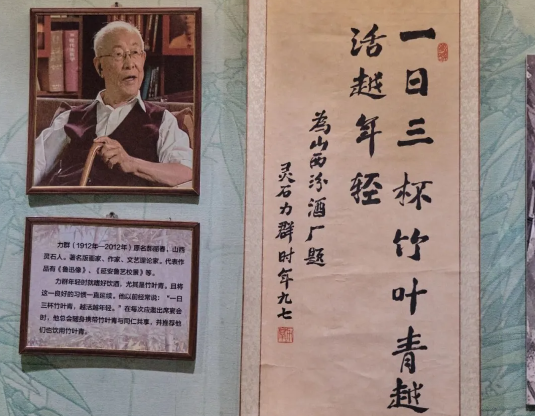 力群（1912年—2012年）原名郝丽春，山西
灵石人。著名版画家、作家、文艺理论家。代表作
品有《鲁迅像》、《延安鲁艺校景》等。
力群年轻时就嗜好饮酒，尤其是竹叶青，且将
这一良好的习惯一直延续。他以前经常说：“一日
三杯竹叶青，越活越年轻。”在每次应邀出席宴会
时，他总会随身携带竹叶青与同仁共享，并推荐他
们也饮用竹叶青。
一日三杯竹叶青越
活越年轻
為山西汾酒厂题
灵石力群时年九七